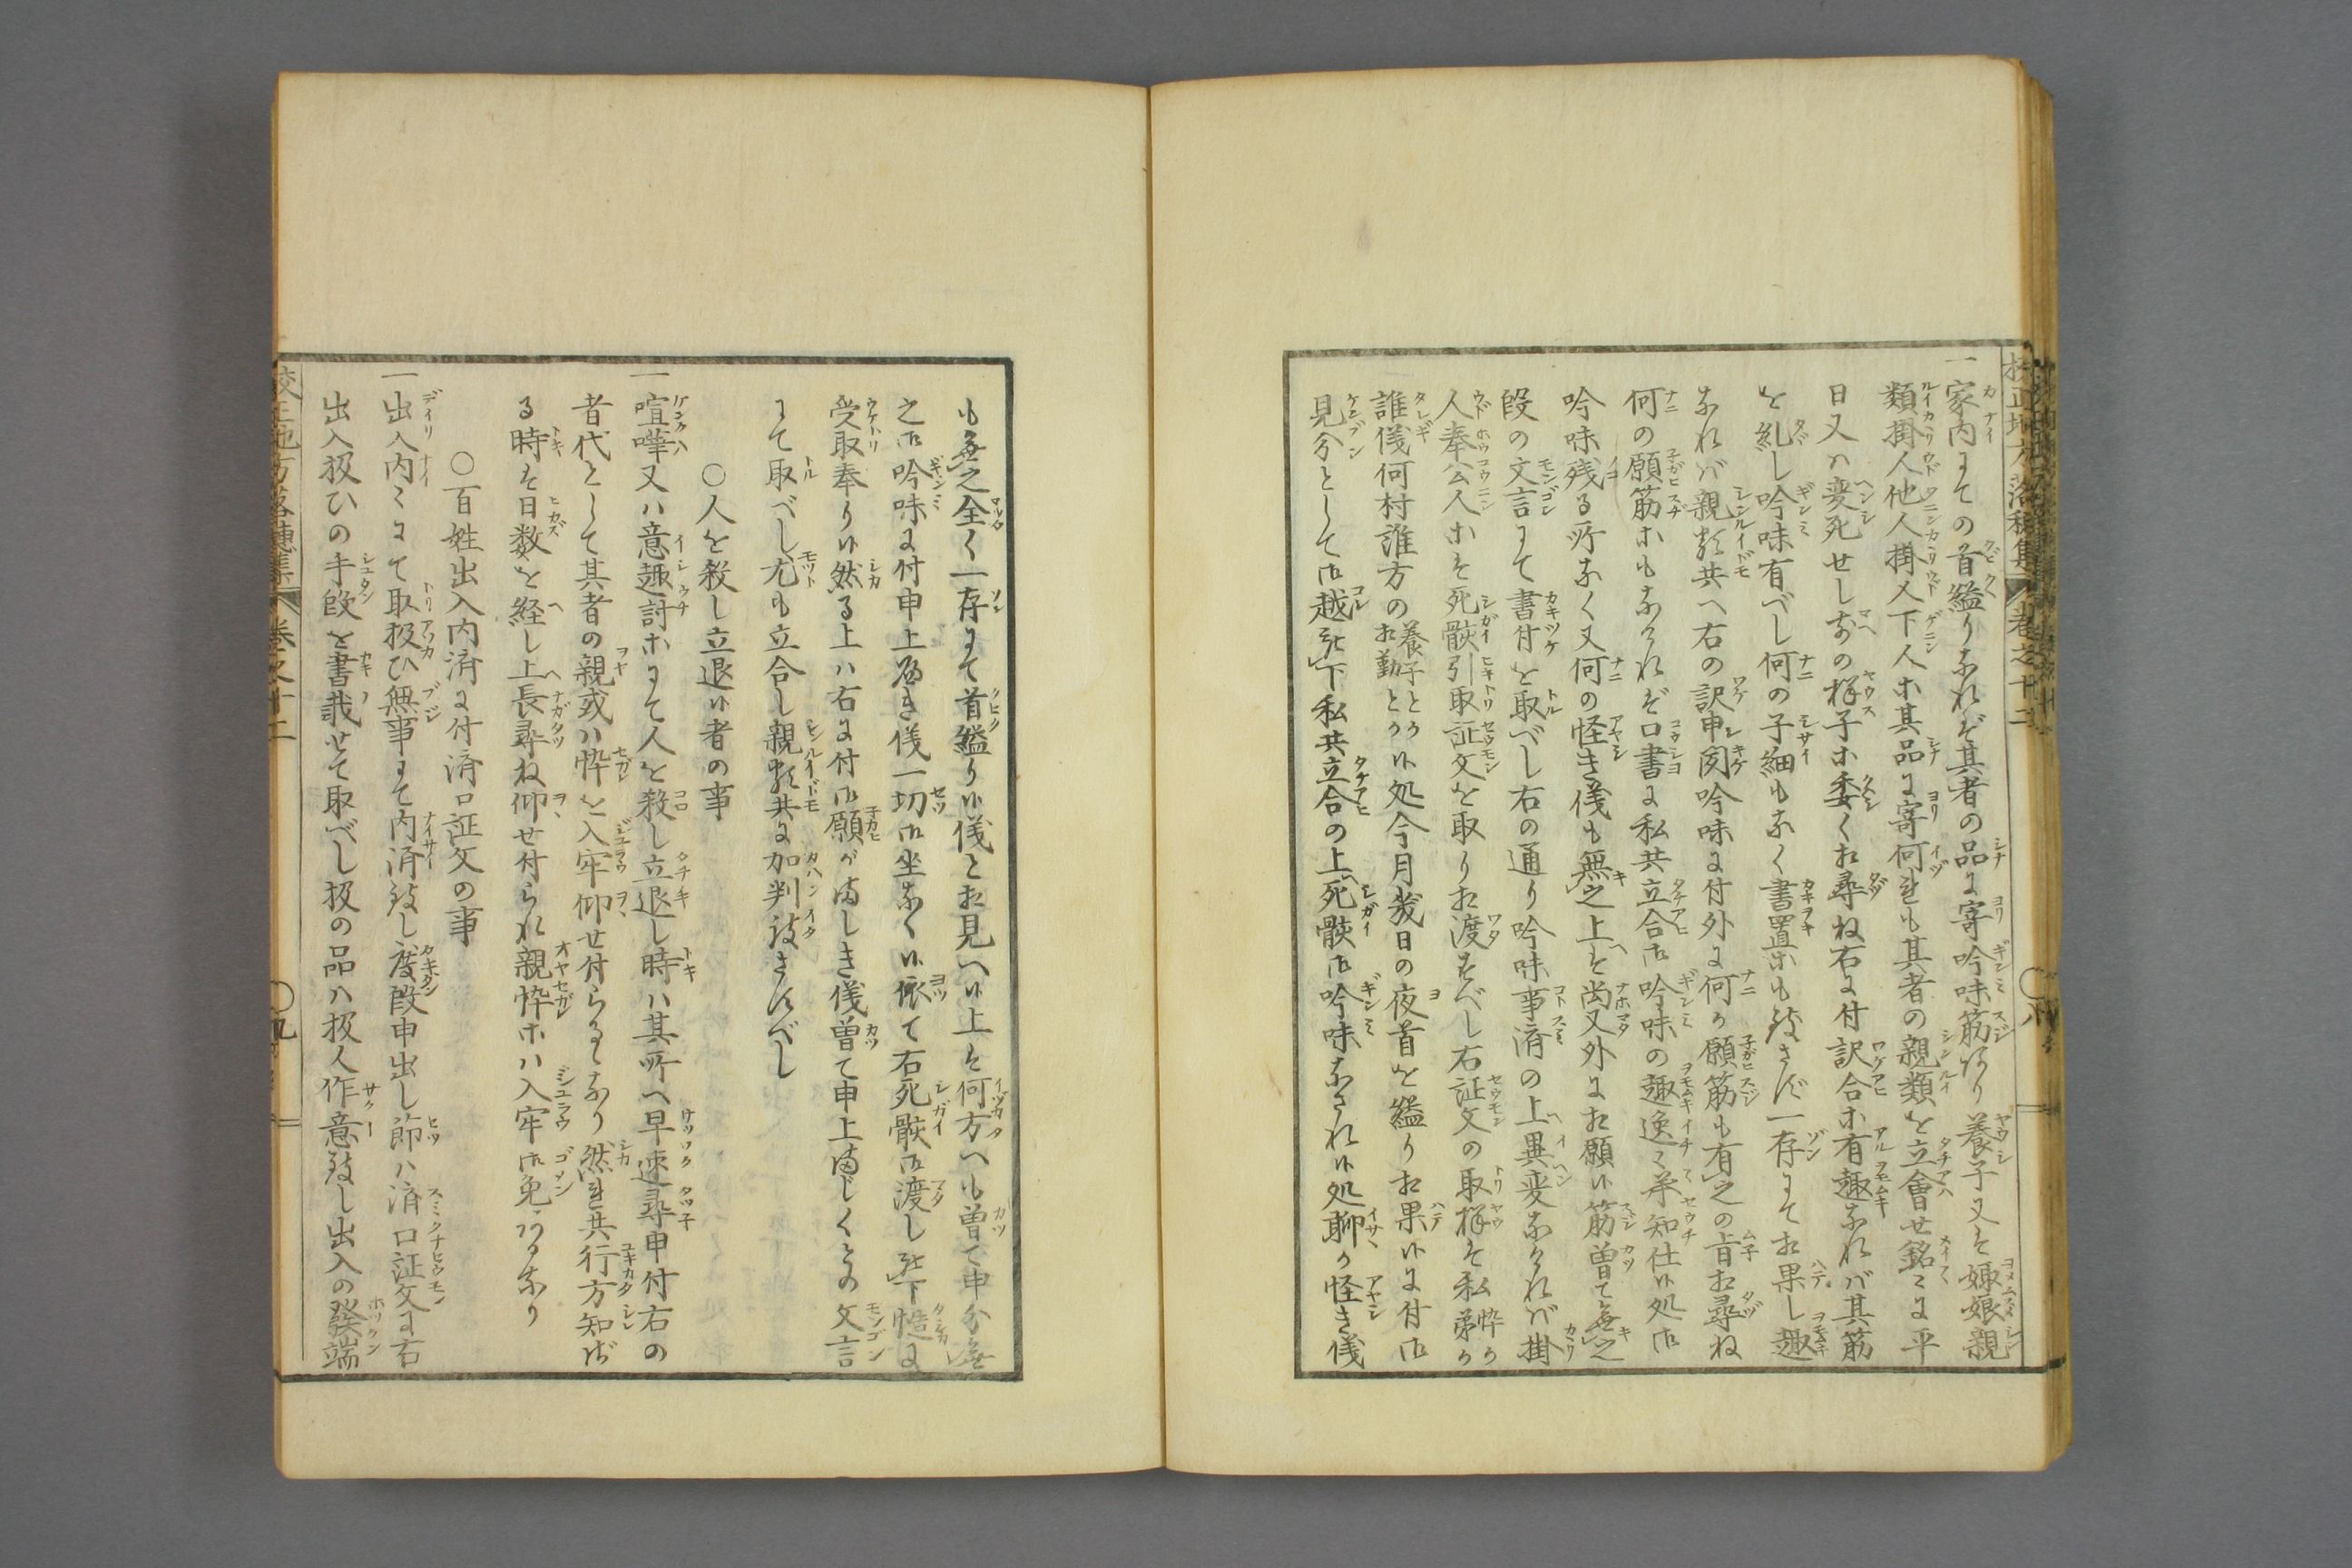 一家内にての首縊りなれば其者の品に寄吟味筋あり養子又は娵娘親
類掛人他人掛人下人ホ其品に寄何れも其者の親類を立會せ銘々に平
日又ハ変死せし前の様子ホ委く相尋ね右に付訳合ホ有趣なれバ其筋
を糺し吟味有べし何の子細もなく書置ホも致さず一存にて相果し趣
なれバ親類共へ右の訳申聞吟味に付外に何か願筋も有之の旨相尋ね
何の願筋ホもなければ口書に私共立合御吟味の趣逸々承知仕候処御
吟味残る所なく又何の怪き儀も無之上は尚又外に相願候筋曽て無之
段の文言にて書付を取べし右の通り吟味事済の上異変なければ掛
人奉公人ホは死骸引取証文を取り相渡すべし右証文の取様は私忰か弟か
誰儀何村誰方の養子とか相勤とか候処今月幾日の夜首を縊り相果候に付御
見分として御越被下私共立合の上死骸御吟味なされ候処聊か怪き儀
校正地方落穂集 巻之十二 〇八
も無之全く一存にて首縊り候儀と相見へ候上は何方へも曽て申分無
之御吟味に付申上べき儀一切御坐なく候依て右死骸御渡し被下慥に
受取奉り候然る上ハ右に付御願がましき儀曽て申上まじくとの文言
にて取べし尤も立合し親類共に加判致さすべし
〇人を殺し立退候者の事
一喧嘩又ハ意趣討ホにて人を殺し立退し時ハ其所へ早速尋申付右の
者代として其者の親或ハ忰を入牢仰せ付らるゝなり然れ共行方知ず
る時は日数を経し上長尋ね仰せ付られ親忰ホハ入牢御免あるなり
〇百姓出入内済に付済口証文の事
一出入内々にて取扱ひ無事にて内済致し度段申出し節ハ済口証文に右
出入扱ひの手段を書載せて取べし扱の品ハ扱人作意致し出入の發端
校正地方落穂集 巻之十二 〇九